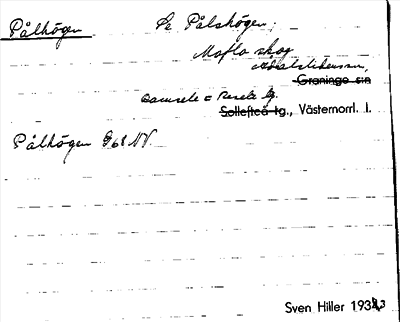 Pålhögen Se Pålshögen;
Moflo skog
Ådalslidens sn,
Graninge sn
Ramsele o Resele tg.
Sollefteå tg., Västernorrl. l.
Pålhögen G68 NV.
Sven Hiller 1933